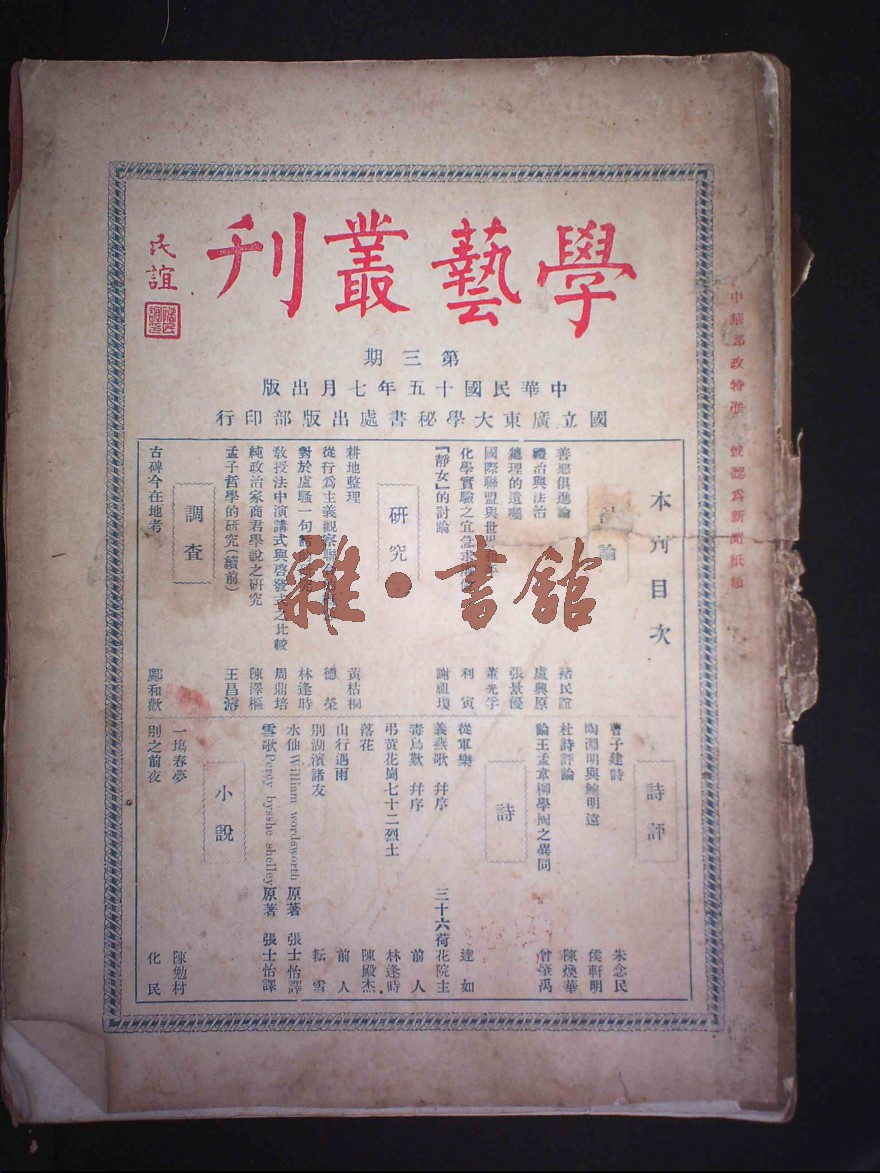 學藝叢刊
民誼
第三期
中華民國十五年七月出版
國立廣東大學秘書處出版部印行
本刊目次
論
善惡俱進論 褚民誼
禮治與法治 盧興原
總理的遺囑 張景優
國際聯盟與世界 董光孚
化學實驗之宜急求 利寅
「靜女」的討論 謝祖瓊
研究
耕地整理 黃枯桐
從行為主義觀察聯 德榮
對於盧騷一句話 林逢時
教授法中演講式與啓發式之比較 周鼎培
純政治家商君學說之研究 陳澤樞
孟子哲學的研究(續前) 王昌濬
調查
古碑今在地考 鄺和歡
詩評
曹子建詩 朱念民
陶淵明與鮑明遠 侯軒明
杜詩評論 陳煥華
論王孟韋柳學陶之異同 曾肇禹
詩
從軍樂 達如
義燕歌 幷序 三十六荷花院主
毒鳥歎 幷序 前人
弔黃花崗七十二烈士 林逢時
落花 陳殿杰
山行遇雨 前人
別湖濱諸友 耘雪
水仙William wordsworth原著 張士怡譯
雪歌Percy bysshe shelley原著 張士怡譯
小說
一塲春夢 陳勉村
別之前夜 化民
中華郵政特准 號認為新聞紙類
雜·書館